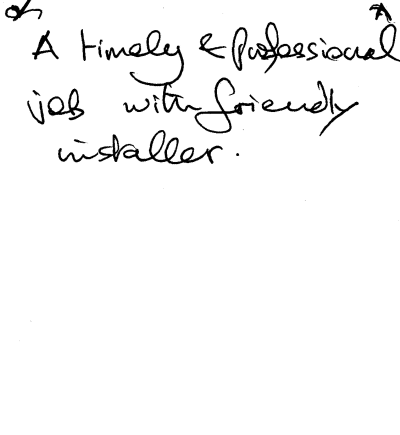 A timely & professional
job with friendly
installer.